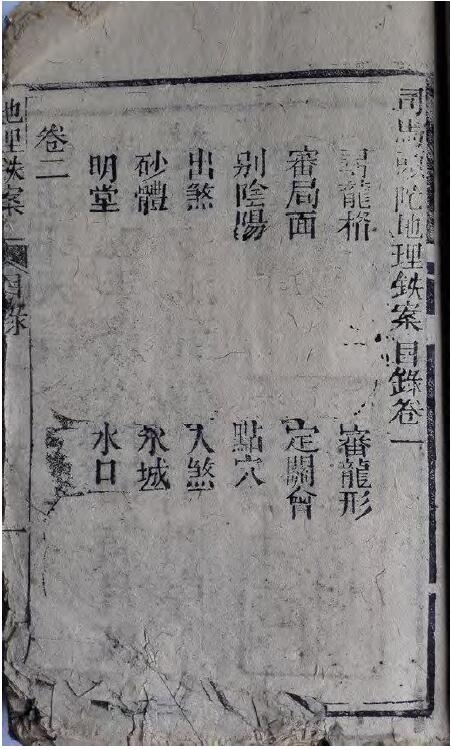 司馬頭陀地理鉄案目錄卷一
龍格 審龍形
審局面 定關會
别陰陽 點穴
出煞 入煞
砂體 水城
明堂 水口
卷二
地理鉄案 目錄 一